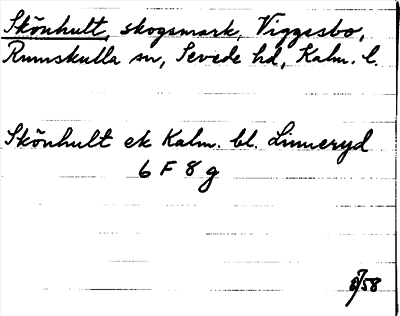 Skönhult, skogsmark, Viggesbo,
Rumskulla sn, Sevede hd, Kalm. l.
Skönhult ek Kalm. bl. Linneryd
6 F 8 g
58